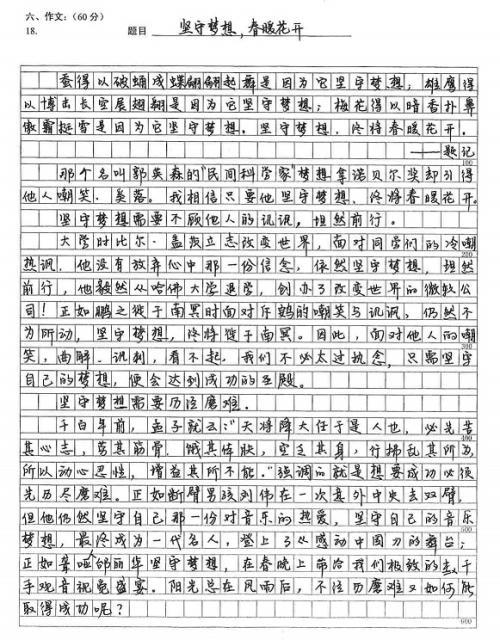 六、作文：（60分）
18. 题目 坚守梦想，春暖花开
蚕得以破蛹成蝶翩翩起舞是因为它坚守梦想；雄鹰得
以博击长空展翅翱翔是因为它坚守梦想；梅花得以暗香扑鼻
傲霜挺雪是因为它坚守梦想。坚守梦想，终将春暖花开。
——题记
100
那个名叫郭英森的"民间科学家"梦想拿诺贝尔奖却引得
他人嘲笑、奚落。我相信只要他坚守梦想，终将春暖花开。
坚守梦想需要不顾他人的讥讽，坦然前行。
大学时比尔·盖茨立志改变世界，面对同学们的冷嘲
200
热讽，他没有放弃心中那一份信念，依然坚守梦想，坦然
前行，他毅然从哈佛大学退学，创办了改变世界的微软公
司！正如鹏之徙于南冥时面对斥鹌的嘲笑与讥讽，仍然不
为所动，坚守梦想，终将徙于南冥。因此，面对他人的嘲
300
笑，曲解、讥刺，看不起，我们不必太过执念，只需坚守
自己的梦想，便会达到成功的圣殿。
坚守梦想需要历法磨难。
千百年前，孟子就云："天将降大任于是人也，必先苦
400
其心志，劳其筋骨，饿其体肤，空乏其身，行拂乱其所为，
所以动心忍性，增益其所不能。"强调的就是想要成功必须
先历尽磨难。正如断臂男孩刘伟在一次意外中失去双臂，
但他仍然坚守自己那一份对音乐的热爱，坚守自己的音乐
500
梦想，最终成为一代名人，登上了感动中国的舞台；
正如聋哑人邰丽华坚守梦想，在春晚上带给我们极致的千
手观音视觉盛宴。阳光总在风雨后，不经历磨难又如何能
取得成功呢？
600